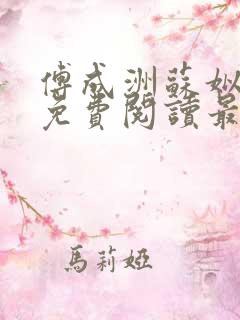 傅成洲蘇姒
免費閱讀最
馬莉婭